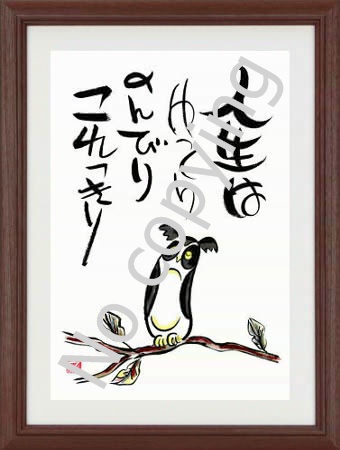 人生は
ゆっくり
のんびり
これっきり
No copying